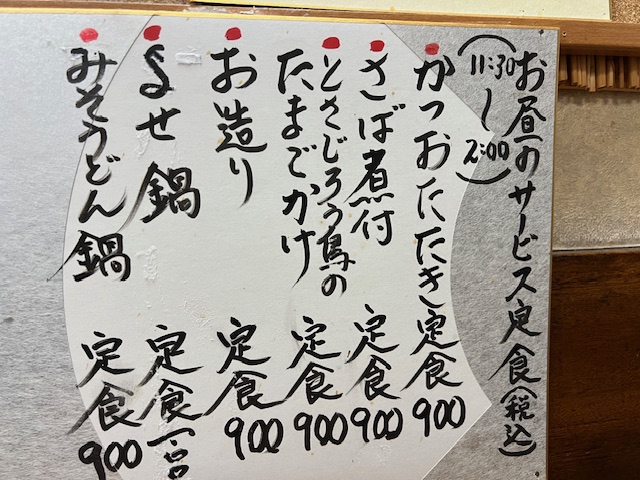 お昼のサービス定食(税込)
(11:30〜2:00)
かつおたたき定食900
さば煮付定食900
とさじろう鳥の
たまごかけ定食900
お造り定食900
よせ鍋定食
みそうどん鍋定食900